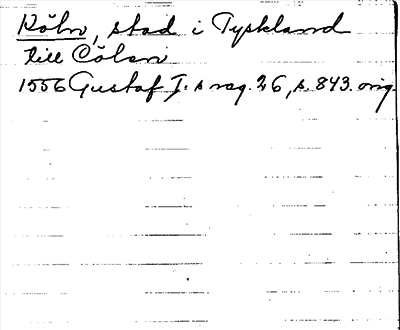 Köln, stad i Tyskland
till Cölen
1556 Gustaf I:s reg. 26, s. 843. orig.